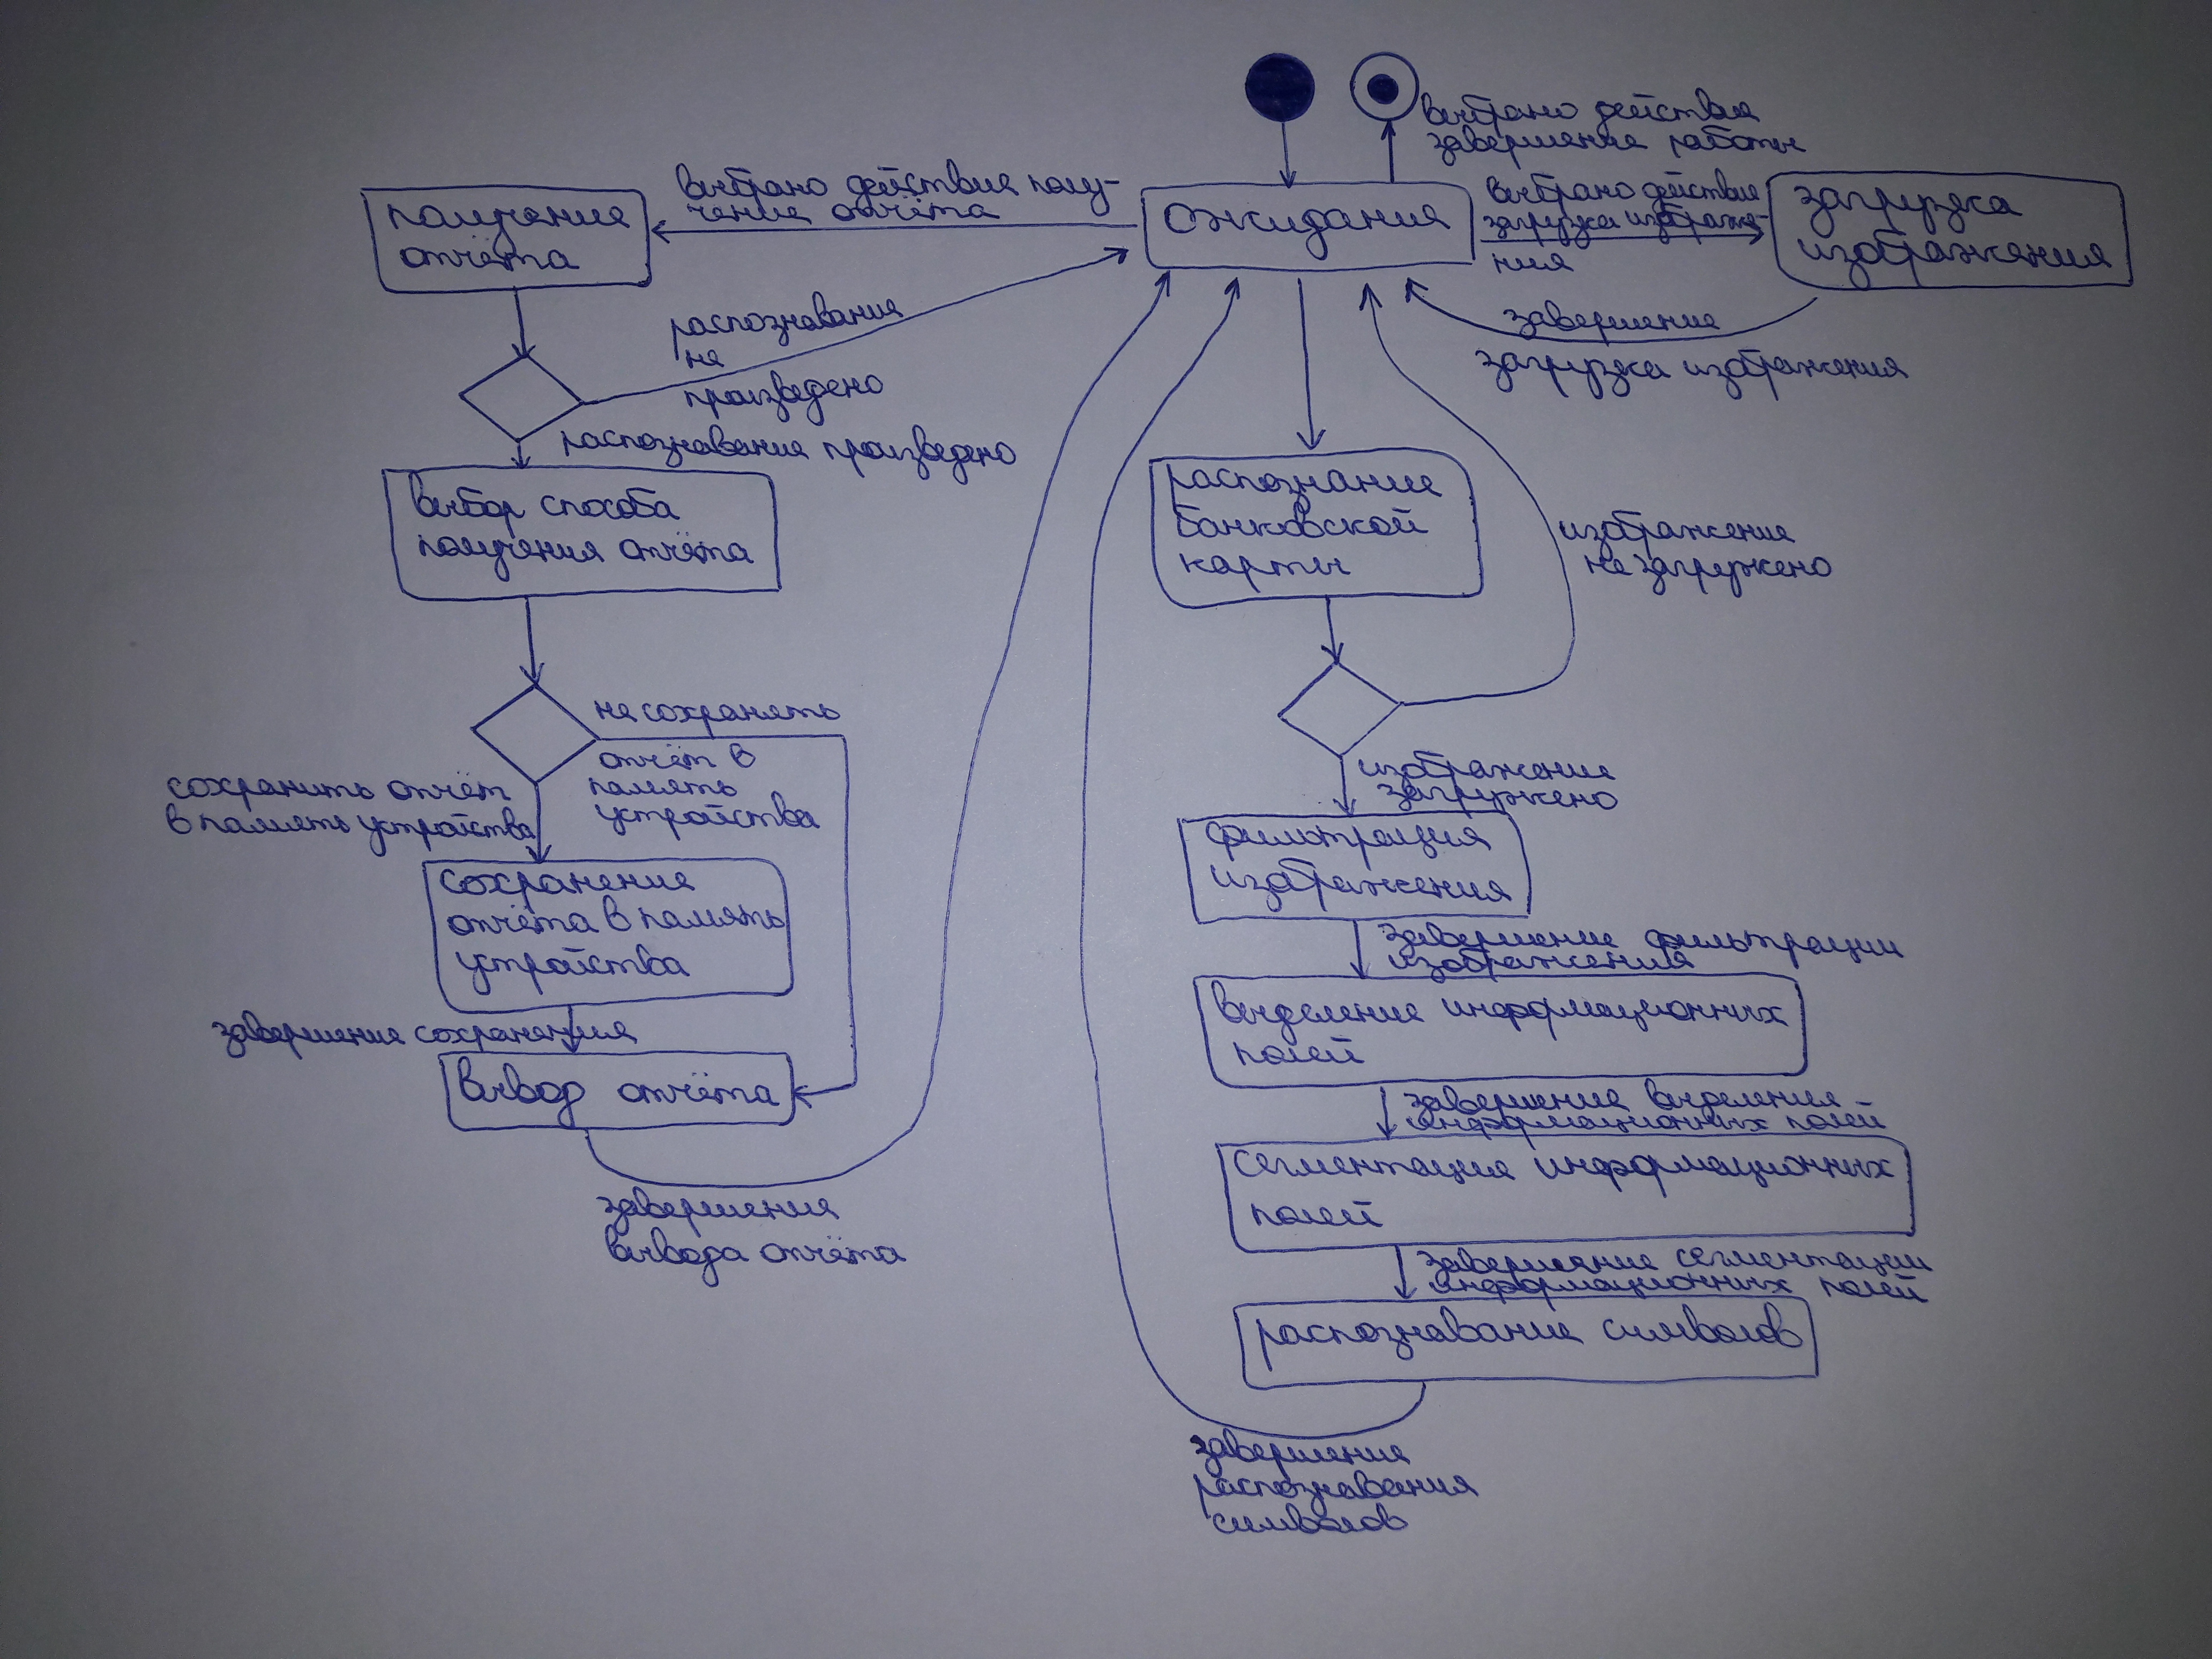 выбрано действие
завершение работы
выбрано действие полу-
чение отчёта
получение
отчёта
ожидания
выбрано действие
загрузка изображе-
ния
загрузка
изображения
распознавание
не
произведено
завершение
загрузка изображения
распознавание произведено
выбор способа
получения отчёта
распознание
банковской
карты
изображение
не загружено
не сохранять
отчёт в
память
устройства
сохранить отчёт
в память устройства
изображение
загружено
сохранение
отчёта в память
устройства
фильтрация
изображения
завершение фильтрации
изображения
завершение сохранения
вывод отчёта
выделение информационных
полей
завершение выделения
информационных полей
завершения
вывода отчёта
сегментация информационных
полей
завершение сегментации
информационных полей
распознавание символов
завершение
распознавания
символов